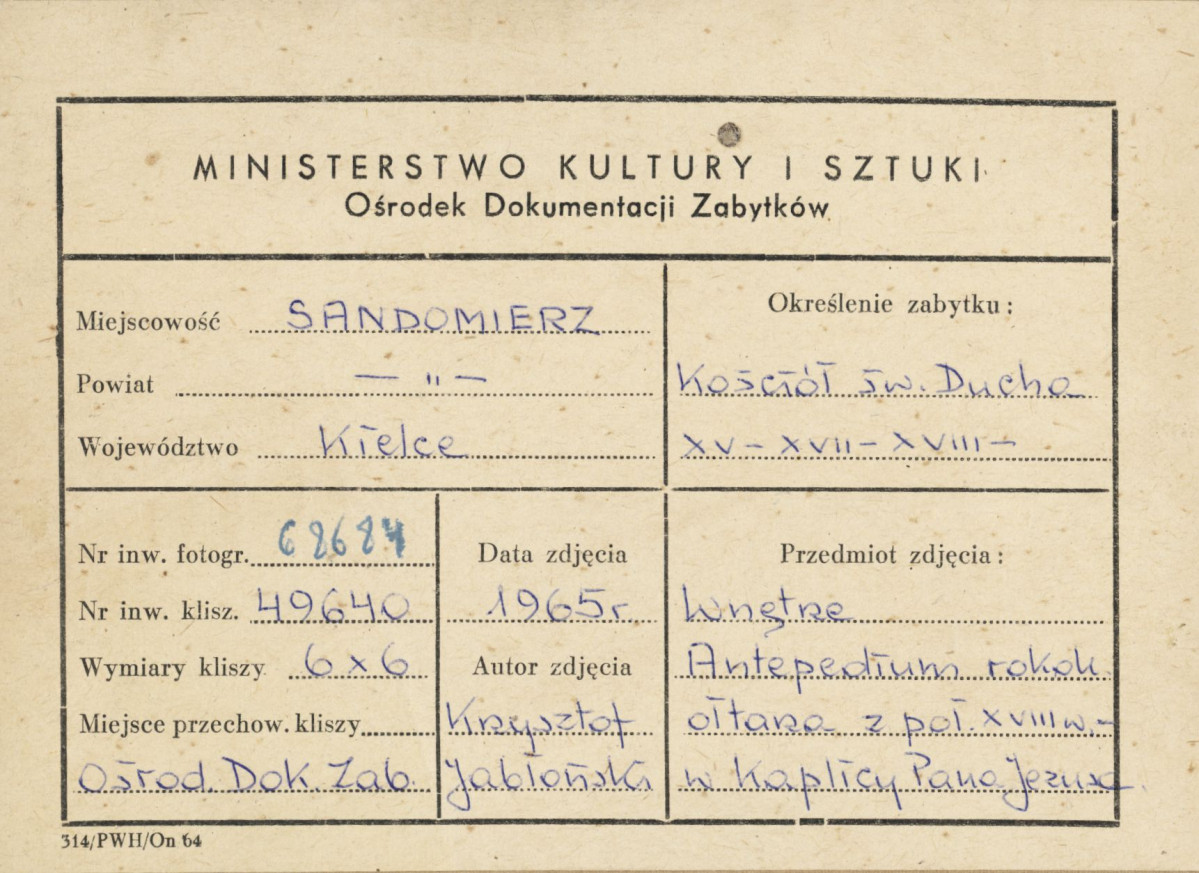 MINISTERSTWO KULTURY I SZTUKI
Ośrodek Dokumentacji Zabytków
Miejscowość SANDOMIERZ
Powiat — „ —
Województwo Kielce
Określenie zabytku:
Kościół św. Ducha
XV – XVII – XVIII –
Nr inw. fotogr. 68684
Nr inw. klisz. 49640
Wymiary kliszy 6 x 6
Miejsce przechow. kliszy
Ośrod. Dok. Zab.
Data zdjęcia
1965 r
Autor zdjęcia
Krzysztof
Jabłoński
Przedmiot zdjęcia:
Wnętrze
Antepedium rokok.
ołtarza z poł. XVIII w. –
w Kaplicy Pana Jezusa
314/PWH/On 64